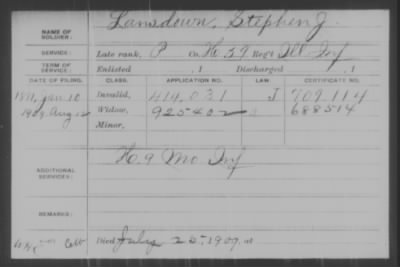 NAME OF SOLDIER: Lansdown, Stephen J.
SERVICE: Late rank, P Co. H. 59 Reg't Ill. Inf
TERM OF SERVICE: Enlisted , 1 Discharged , 1
DATE OF FILING. CLASS. APPLICATION NO. LAW. CERTIFICATE NO.
1881, Jan. 10 Invalid, 414,031 J 709.114
1909 Aug 12 Widow, 925402 688514
Minor,
ADDITIONAL SERVICES: H. 9 Mo Inf
REMARKS:
Died July 25, 1909, at